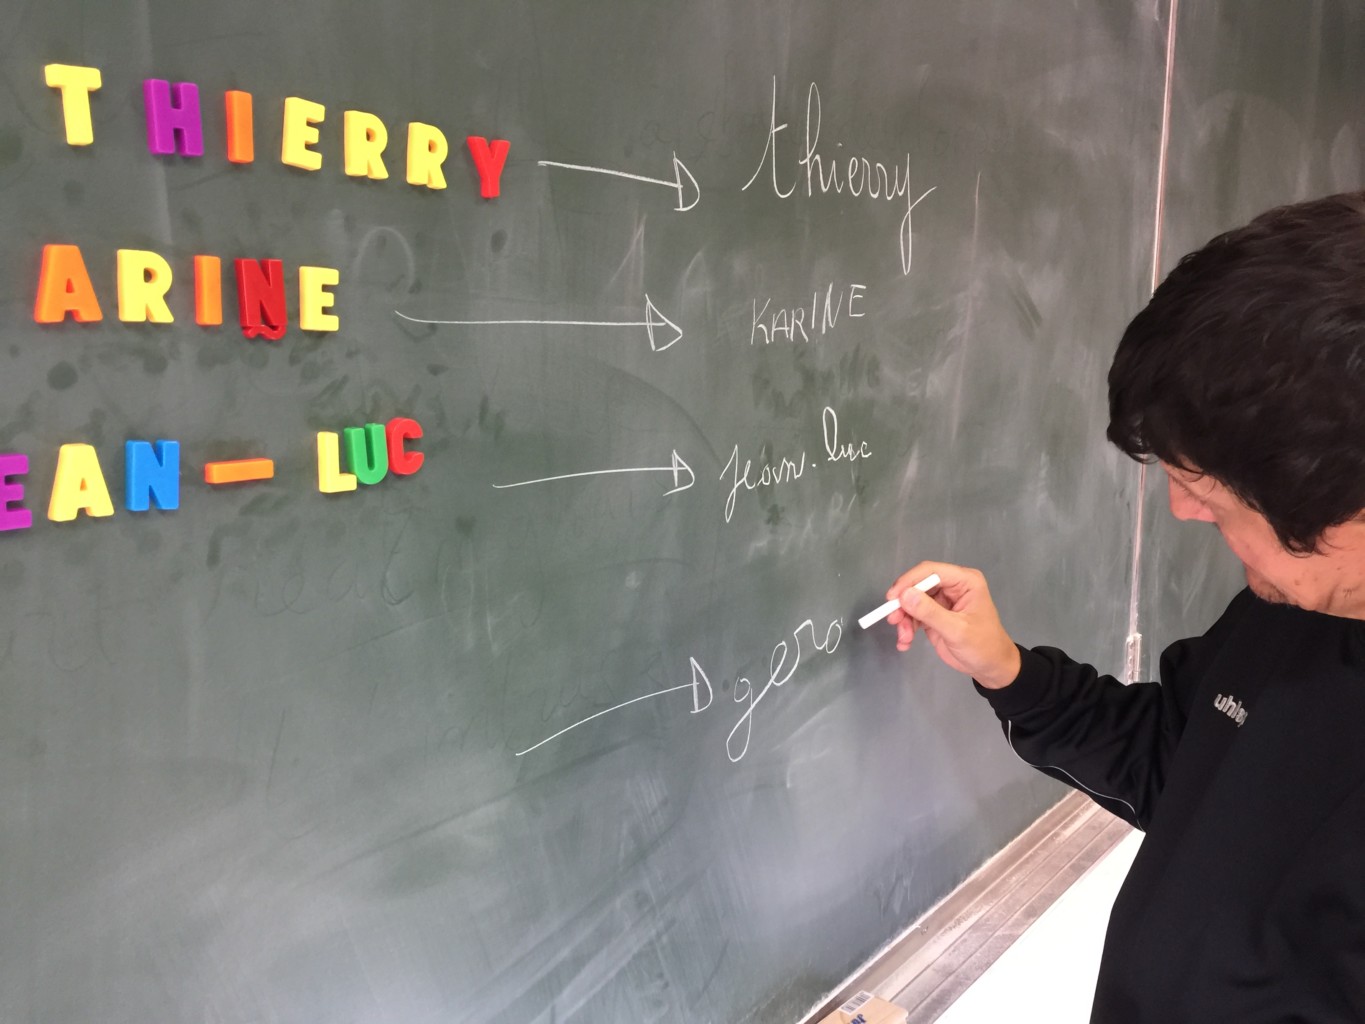 THIERRY thierry
ARINE KARINE
EAN-LUC jean-luc
gero
uhls